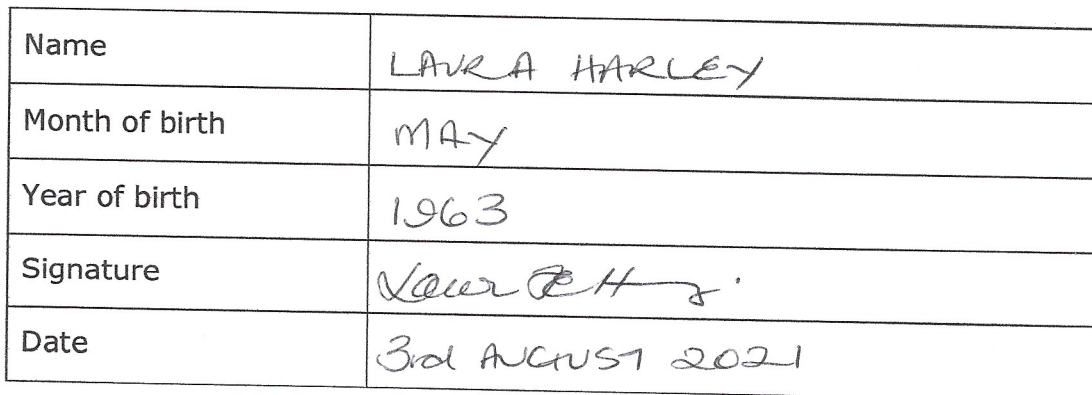 Name LAURA HARLEY
Month of birth MAY
Year of birth 1963
Signature
Date 3rd AUGUST 2021